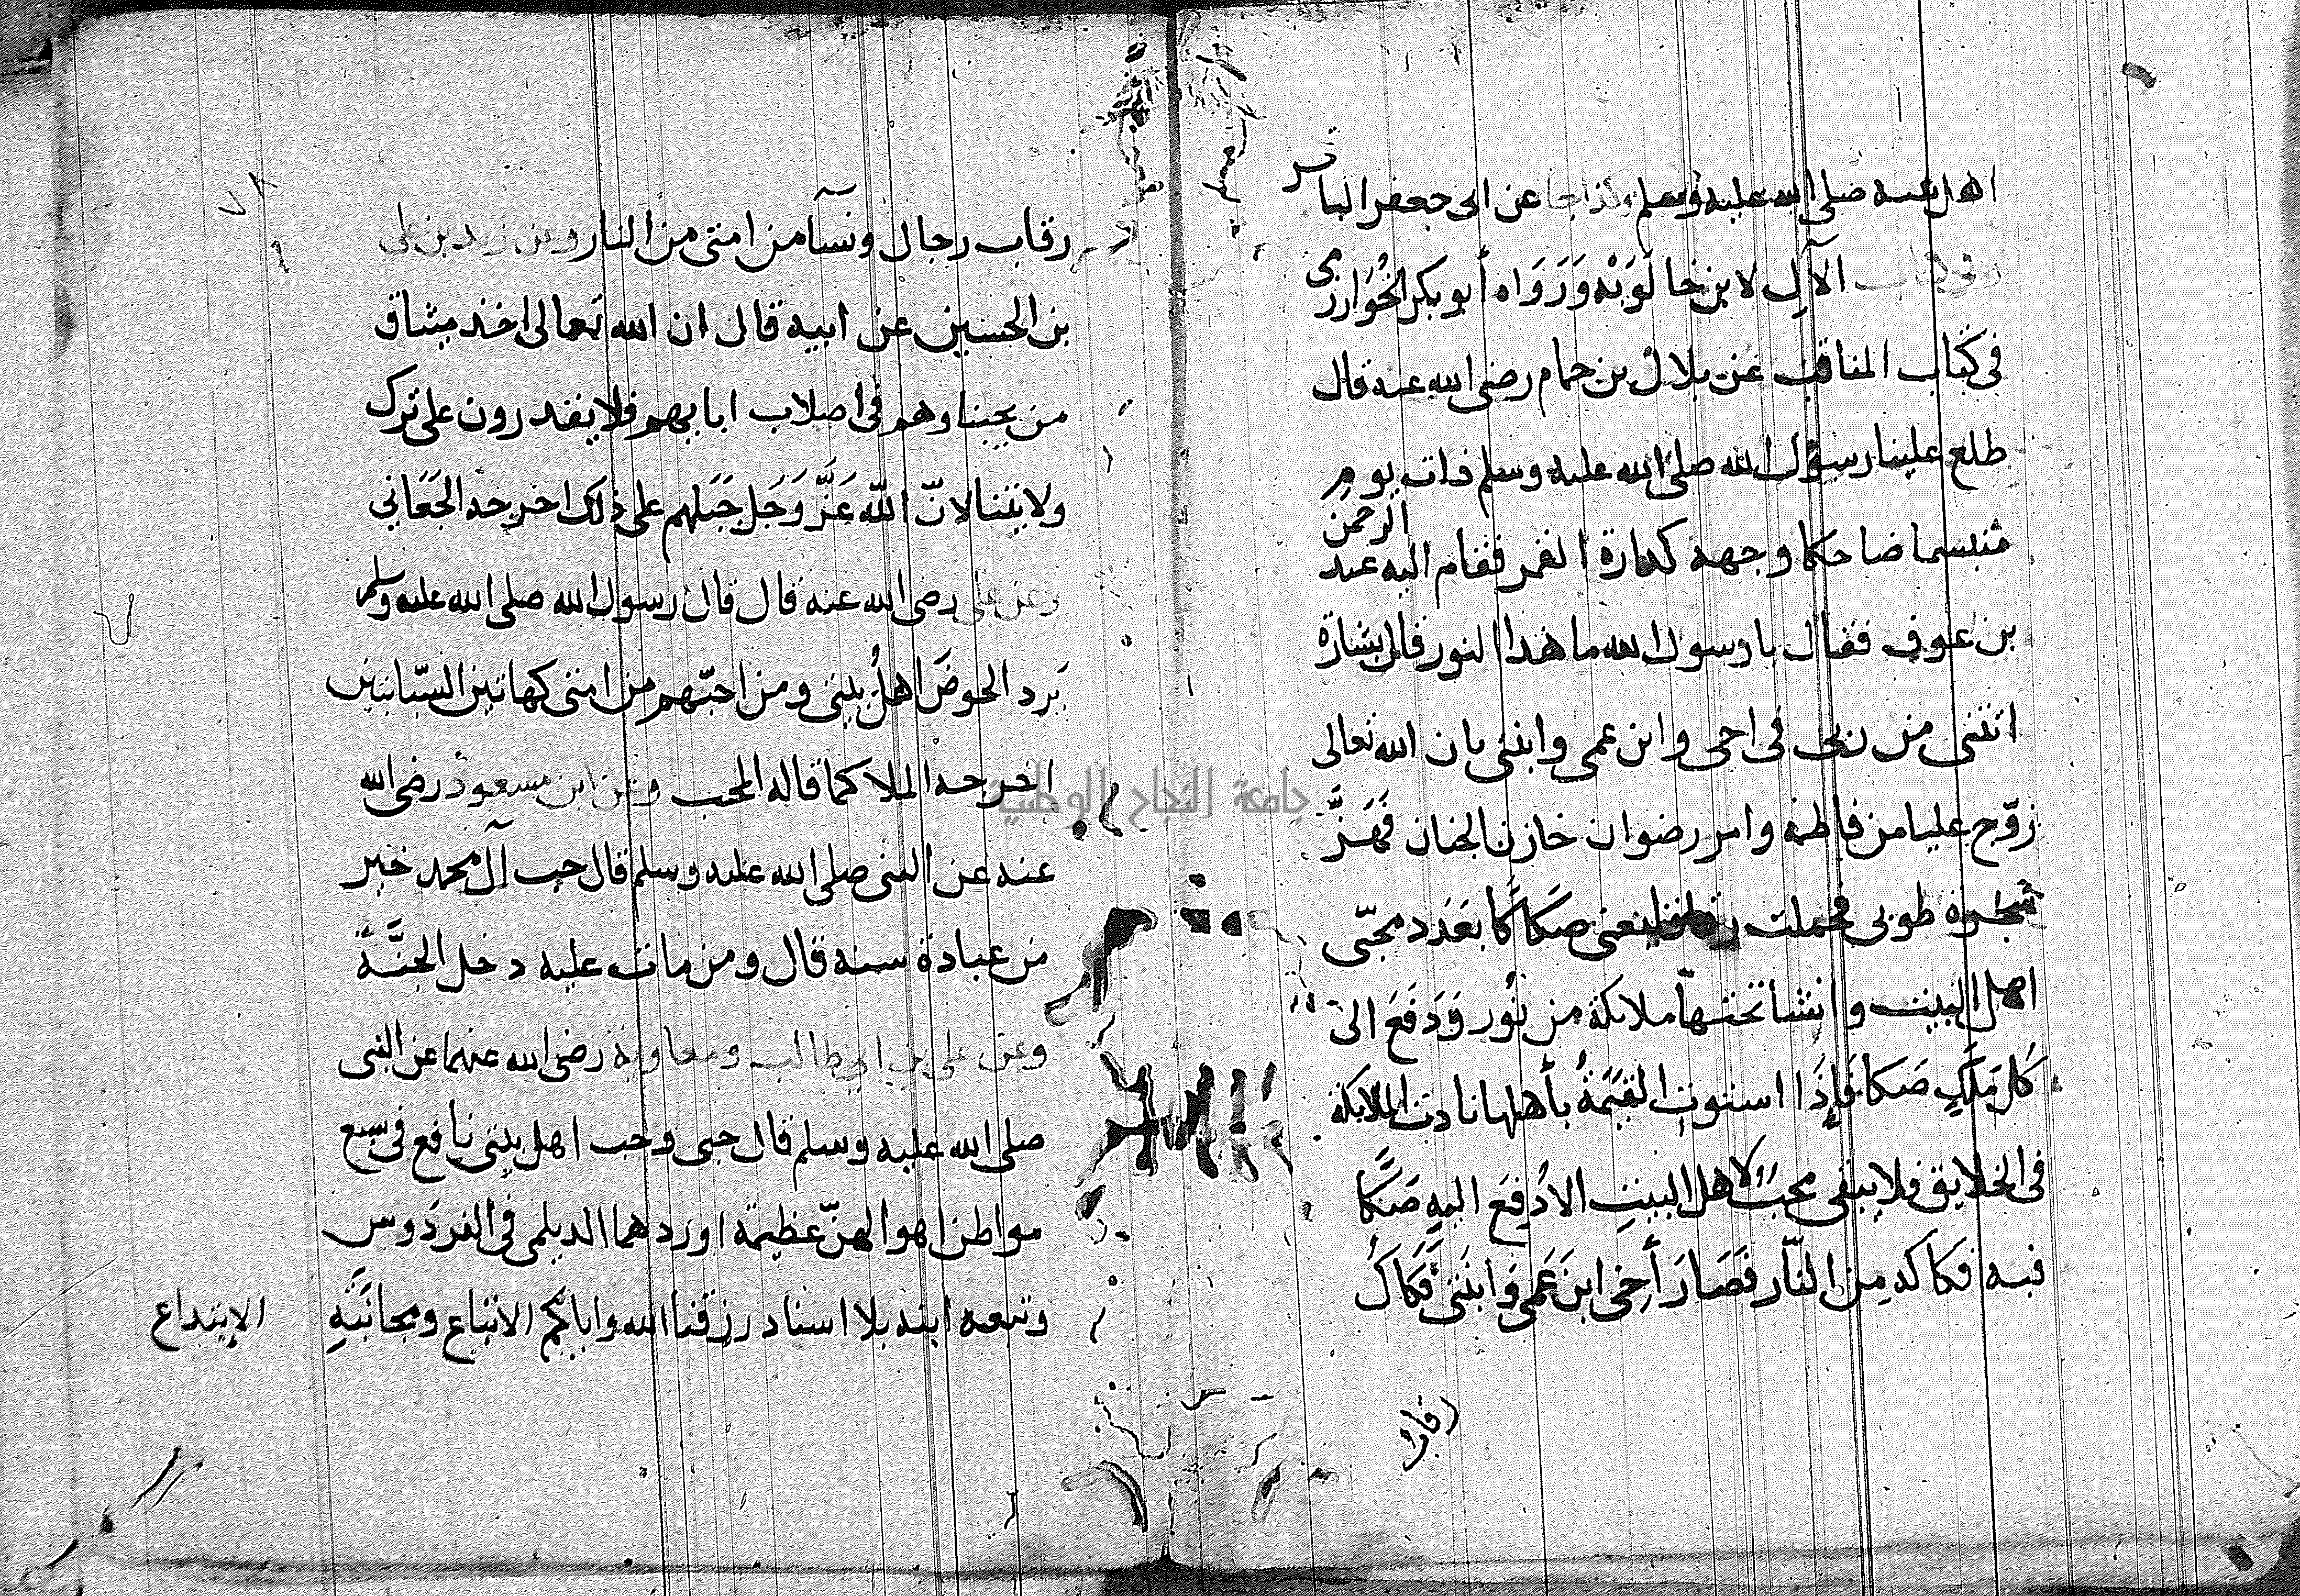 الا ان عمه صلى الله عليه وسلم وكذا جا عن ابى جعفر الباقر
وفى كتاب الآلِ لابن خالَوَيْه وَرَوَاه أبو بكر الخُوَارزمى
فى كتاب المناقب عن بلال بن حمام رضى الله عنه قال
طلع علينا رسول الله صلى الله عليه وسلم ذات يوم
متبسما ضاحكا وجهه كدارة القمر فقام اليه عبد الرحمن
بن عوف فقال يا رسول الله ما هذا النور قال بشارة
اتتنى من ربى فى اخى وابن عمى وابنتى بان الله تعالى
زوّج عليا من فاطمة وامر رضوان خازن الجنان فَهَزَّ
شجرة طوبى فحملت رقاقا يعنى صكاكًا بعَدَد محبّى
اهل البيت وانشأ تحتها ملائكة من نُور وَدَفَعَ الى
كُل مَلَكٍ صَكا فَإذَا استوتِ القيَمَةُ بأهلها نادت الملائكة
فى الخلايق فلا يبقى محبٌ لاهل البيتِ الا دُفِعَ اليهِ صَكًّا
فيه فكاكه مِن النّار فَصَارَ أخى ابنَ عَمى وَابنَتى فَكَاكُ
رقاب
٧٨
رقاب رجال ونسآ من امتى من النار وعن زيد بن على
بن الحسين عن ابيه قال ان الله تعالى اخذ ميثاق
من يحبنا وهم فى اصلاب ابايهم فلا يقدرون على ترك
ولايتنا لانّ اللّه عَزَّ وَجَل جَبَلهم على ذلك اخرجه الجَعَابي
وعن على رضى الله عنه قال قال رسول الله صلى الله عليه وسلم
يَرد الحوضَ اهلُ بيتى ومن احبّهم من امتى كهاتين السّبابتين
اخرجه الملا كما قاله المحب وعن ابن مسعود رضى الله
عنه عن النبى صلى الله عليه وسلم قال حب آل محمد خير
من عبادة سنه قال ومن مات عليه دخل الجنَّةَ
وعن على بن ابى طالب ومعاوية رضى الله عنهما عن النبى
صلى الله عليه وسلم قال حبى وحب اهل بيتى نافع فى سبع
مواطن اهوالهنّ عظيمة اوردهما الديلمى فى الفردوس
وتبعه ابنه بلا اسناد رزقنا الله واياكم الاتباع ومجانَبَةِ
الإبتداع
جامعة النجاح الوطنية